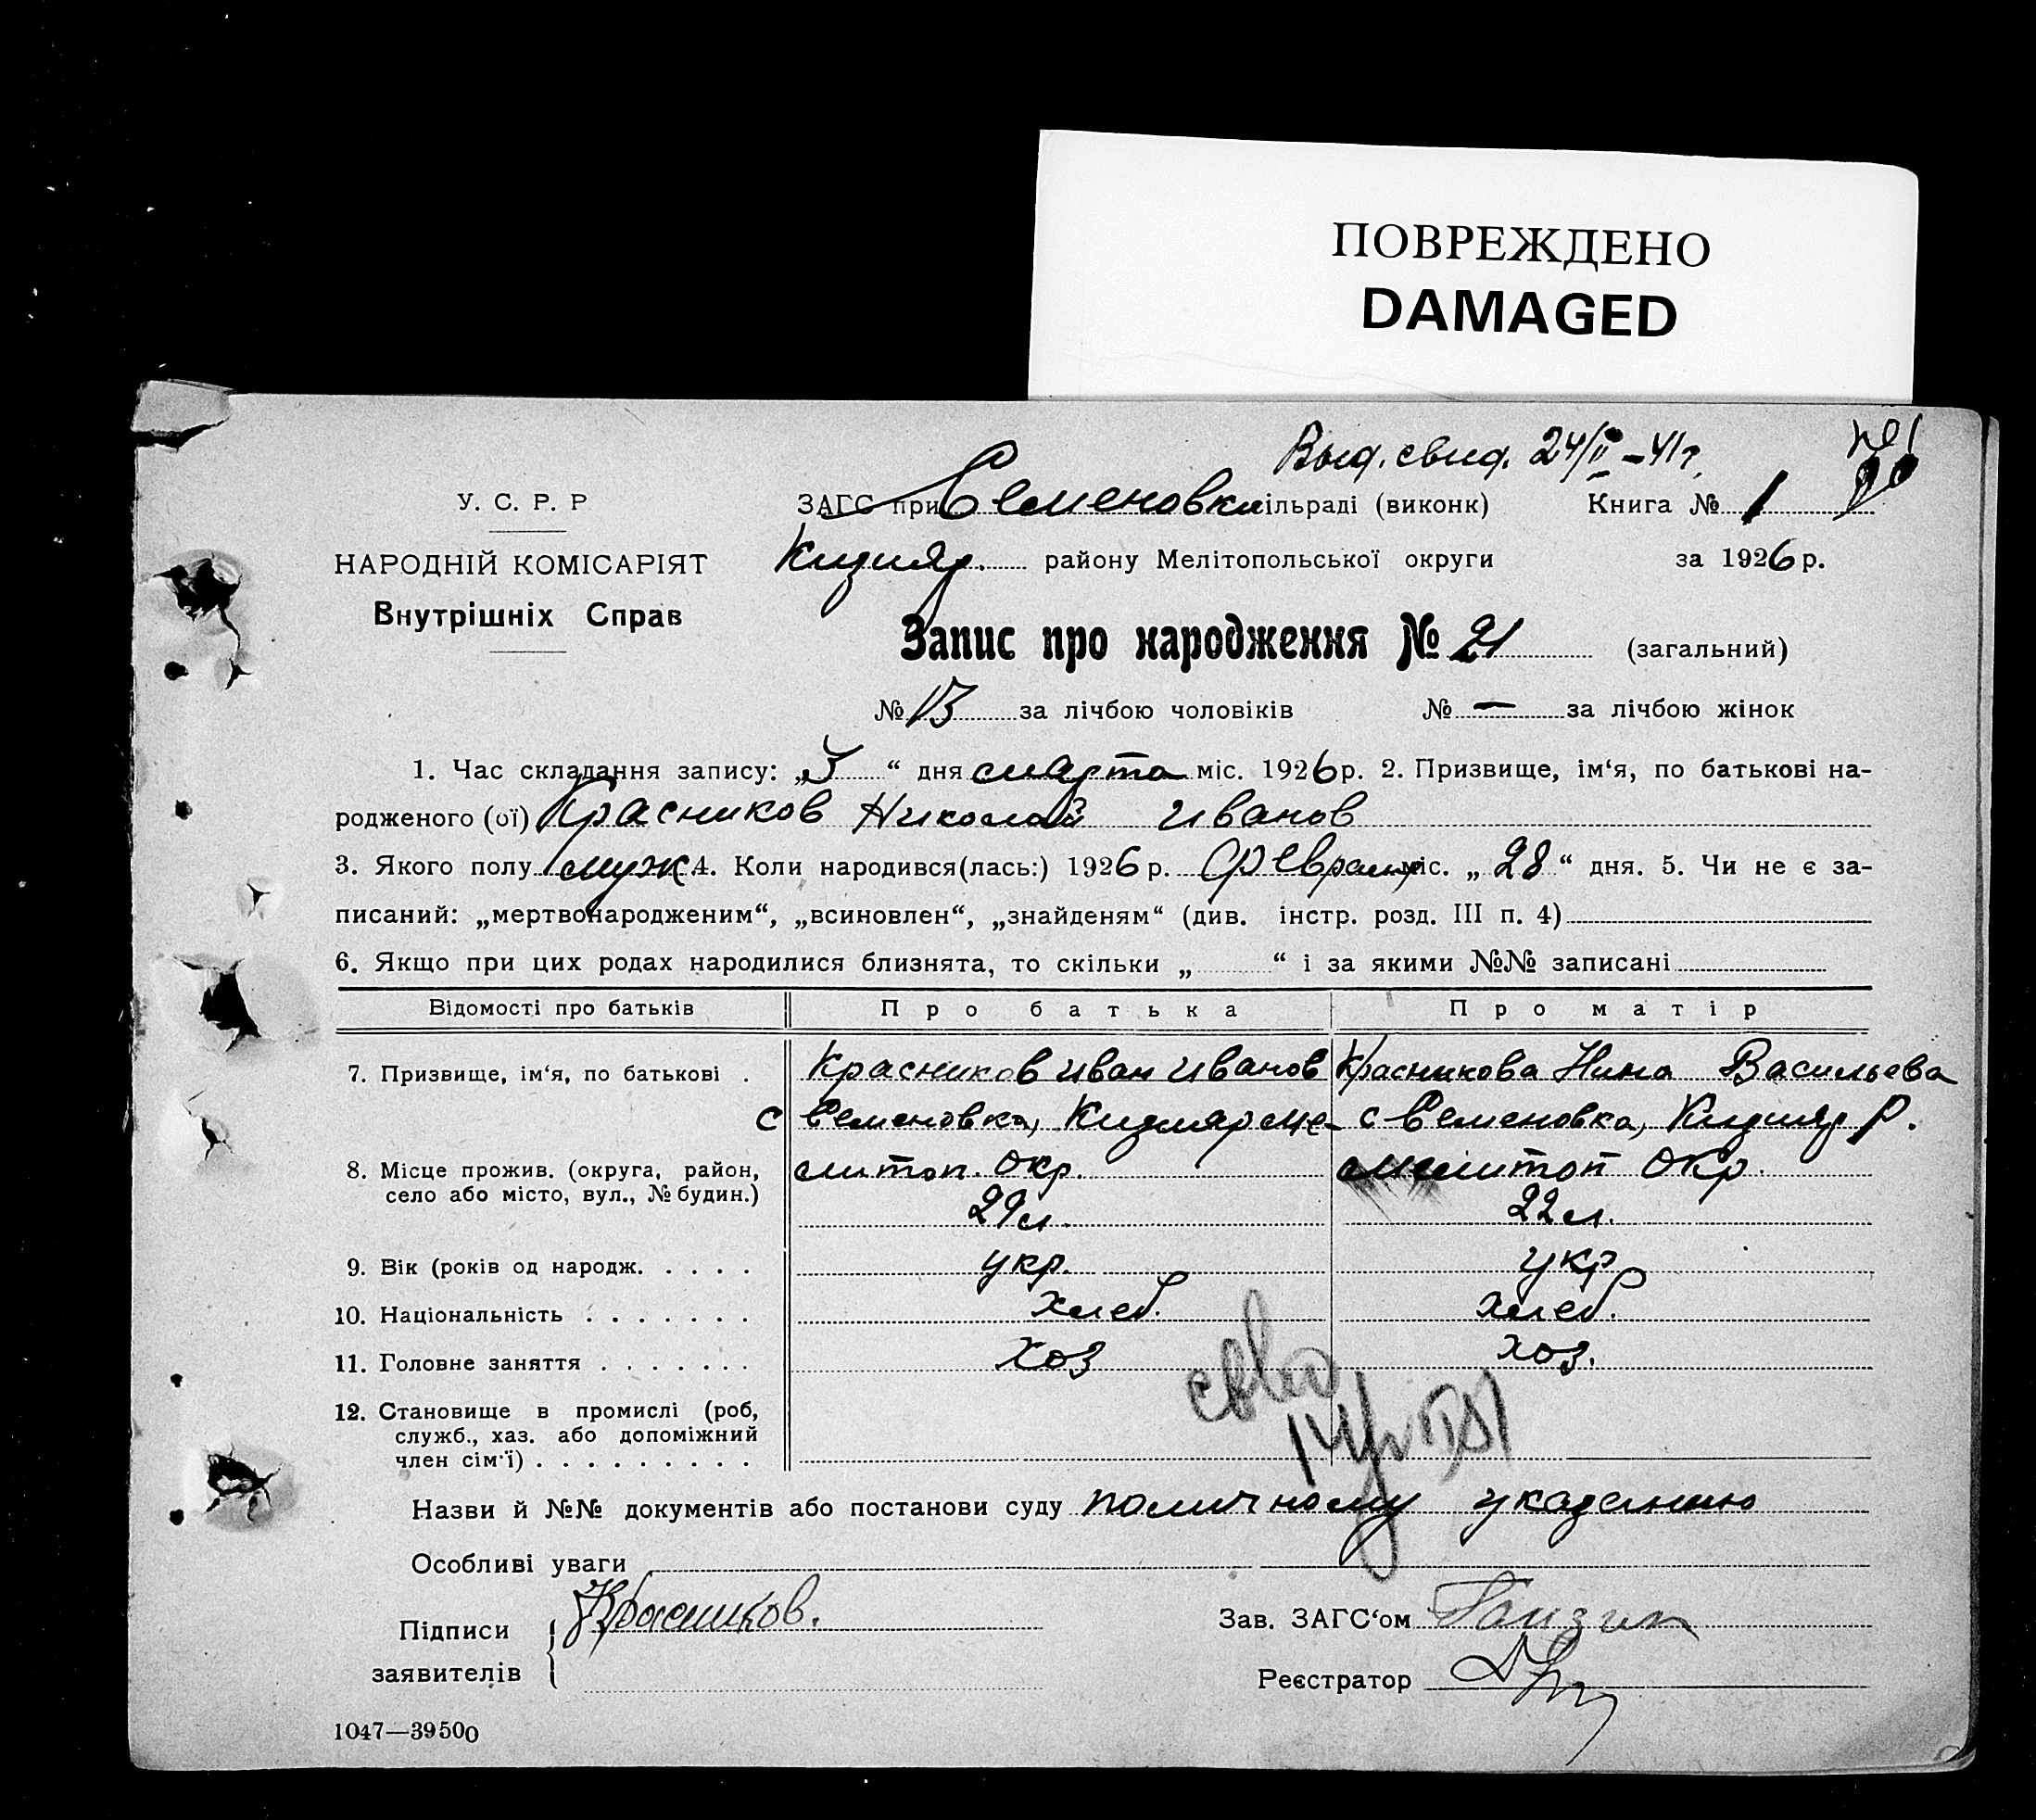 ПОВРЕЖДЕНО
DAMAGED
Выд. свид. 24/II-41 г.
У. С. Р. Р
НАРОДНІЙ КОМІСАРІЯТ
Внутрішніх Справ
ЗАГС при Семеновк ільраді (виконк) Книга № 1
Кизияр. району Мелітопольської округи за 1926 р.
Запис про народження № 21 (загальний)
№ 13 за лічбою чоловіків № — за лічбою жінок
1. Час складання запису: „3“ дня марта міс. 1926 р. 2. Призвище, ім‘я, по батькові на-
родженого (ої) Красников Николай Иванов
3. Якого полу муж 4. Коли народився(лась:) 1926 р. Февраля міс. „28“ дня. 5. Чи не є за-
писаний: „мертвонародженим“, „всиновлен“, „знайденям“ (див. інстр. розд. III п. 4)
6. Якщо при цих родах народилися близнята, то скільки „ “ і за якими №№ записані
Відомості про батьків Про батька Про матір
7. Призвище, ім‘я, по батькові . Красников Иван Иванов Красникова Нина Васильева
с Семеновка, Кизияр ме- с Семеновка, Кизияр р.
8. Місце прожив. (округа, район, литоп. окр. мелитоп окр.
село або місто, вул., № будин.) 29 л. 22 л.
9. Вік (років од народж. . . . . укр. укр
10. Національність . . . . . . . хлеб. хлеб.
11. Головне заняття . . . . . . . хоз хоз.
12. Становище в промислі (роб,
служб., хаз. або допоміжний
член сім‘ї) . . . . . . . . .
Назви й №№ документів або постанови суду по личному указанию
Особливі уваги
Підписи Красников. Зав. ЗАГС‘ом
заявителів Реєстратор
1047—39500